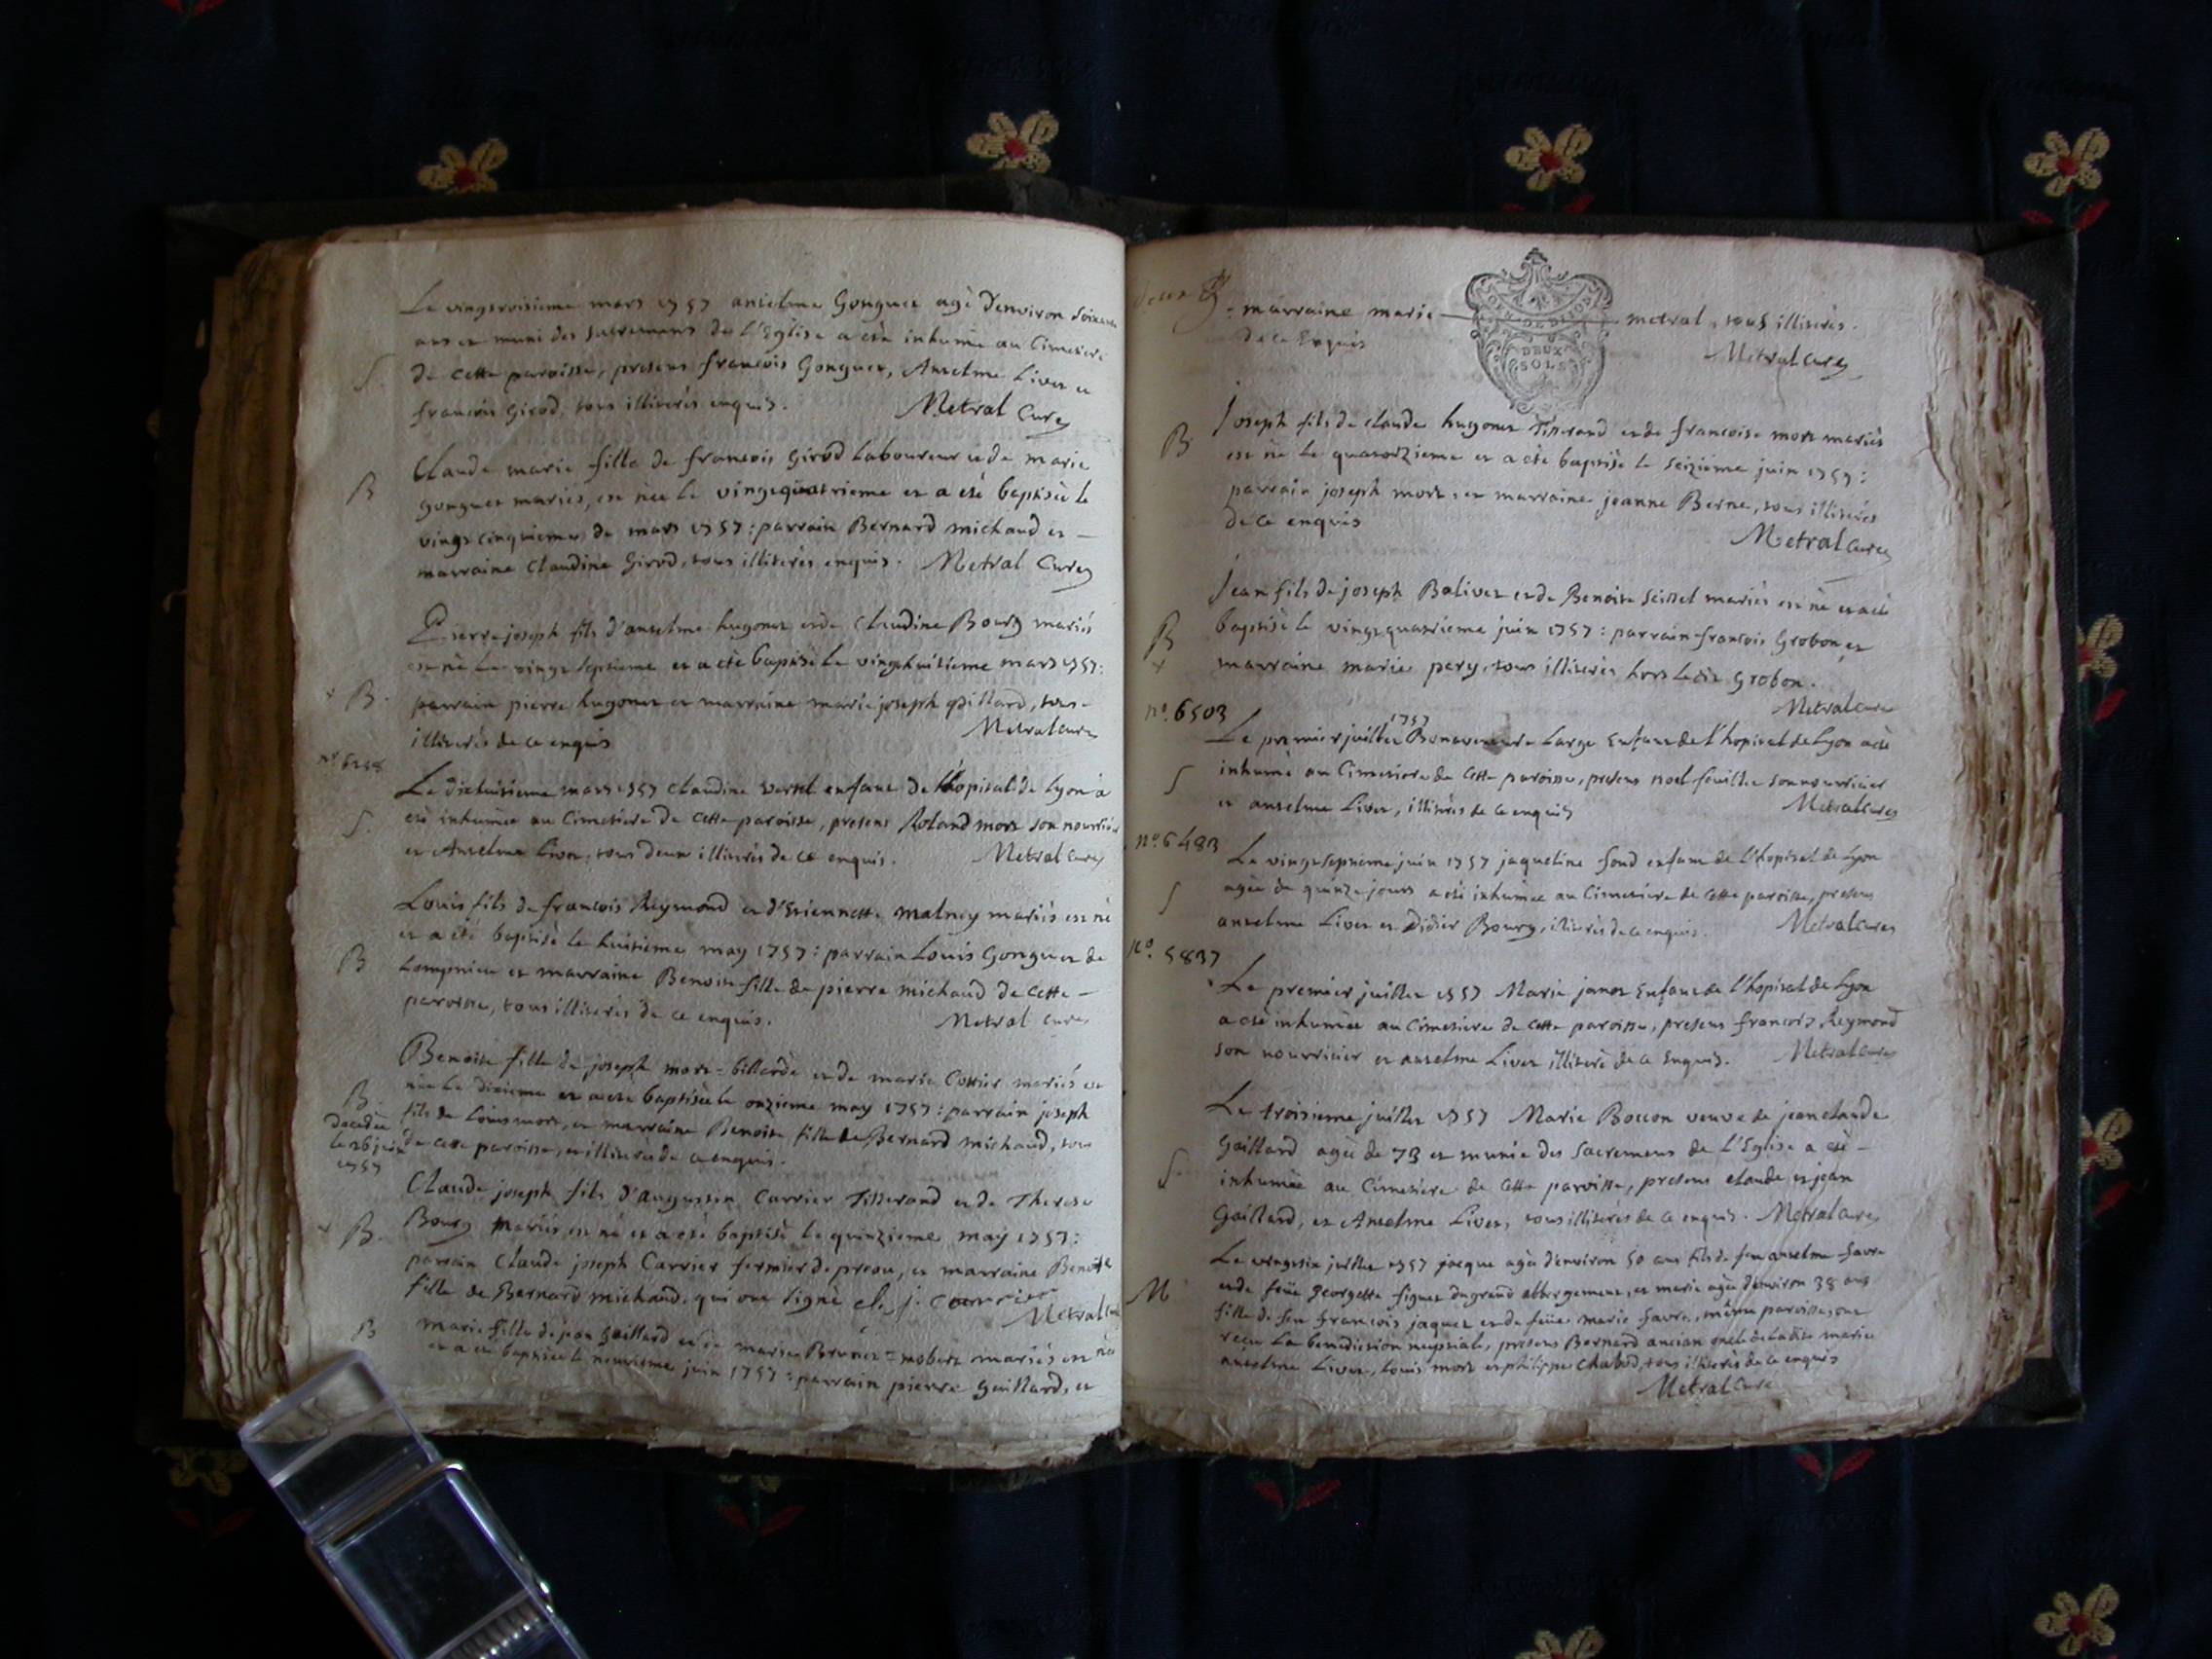 Le vingtroisieme mars 1757 anselme Gonguet agé d'environ soixante
ans et muni des sacremens de l'Eglise a eté inhumé au Cimetiere
S. de cette paroisse, presens francois Gonguet, Anselme Livet et
francois Girod, tous illiterés enquis. Metral Curé
Claude marie fille de francois Girod Laboureur et de marie
B gonguet mariés, est née le vingtquatrieme et a eté baptisée le
vingtcinquieme de mars 1757: parrain Bernard michaud et
marraine Claudine Girod, tous illiterés enquis. Metral Curé
Pierre joseph fils d'anselme hugonet et de Claudine Bourg mariés
est né le vingt septieme et a eté baptisé le vingthuitieme mars 1757:
B. parrain pierre hugonet et marraine marie joseph gaillard, tous
illiterés de ce enquis Metral Curé
Le dixhuitieme mars 1757 Claudine enfant de l'hopital de Lyon a
S. eté inhumée au Cimetiere de cette paroisse, presens Roland mort son nourricier
et Anselme Livet, tous deux illiterés de ce enquis. Metral Curé
Louis fils de francois Reymond et d'Etiennette malney mariés est né
et a eté baptisé le huitieme may 1757: parrain Louis Gonguet de
B Lompnieu et marraine Benoite fille de pierre michaud de cette
paroisse, tous illiterés de ce enquis. Metral curé
Benoite fille de joseph mort=billarde et de marie Cottier mariés est
B. née le dixieme et a eté baptisée le onzieme may 1757: parrain joseph
decedée fils de Louis mort, et marraine Benoite fille de Bernard michaud, tous
le 26 juin de cette paroisse, et illiterés de ce enquis.
1757
Claude joseph fils d'augustin Carrier Tisserand et de Therese
B. Bourg mariés est né et a eté baptisé le quinzieme may 1757:
parrain Claude joseph Carrier fermier de preou, et marraine Benoite
fille de Bernard michaud, qui ont signé cl. j. carrier
Metral Curé
B marie fille de jean gaillard et de marie Brunet=mobert mariés est née
et a eté baptisée le neuvieme juin 1757: parrain pierre gaillard, et
marraine marie metral, tous illiterés.
de ce Enquis Metral Curé
DEUX
SOLS
Joseph fils de claude hugonet Tisserand et de francoise mort mariés
B. est né le quatorzieme et a eté baptisé le seizieme juin 1757:
parrain joseph mort, et marraine jeanne Berne, tous illiterés
de ce enquis
Metral Curé
Jean fils de joseph Bolivet et de Benoite Seissel mariés est né et a eté
B baptisé le vingtquatrieme juin 1757: parrain francois Grobon et
marraine marie pery, tous illiterés hors ledit Grobon.
Metral Curé
n°. 6503
Le premier juillet 1757 Bonaventure Large Enfant de l'hopital de Lyon a eté
S inhumé au Cimetiere de cette paroisse, presens noel feuillet son nourricier
et anselme Livet, illiterés de ce enquis Metral Curé
n°. 6483
Le vingtseptieme juin 1757 jaqueline fond enfant de l'hopital de Lyon
S agée de quinze jours a eté inhumée au Cimetiere de cette paroisse, presens
anselme Livet et Didier Bourg, illiterés de ce enquis. Metral Curé
n°. 5837
Le premier juillet 1757 Marie janot Enfant de l'hopital de Lyon
a eté inhumée au Cimetiere de cette paroisse, presens francois Reymond
son nourricier et anselme Livet illiteré de ce Enquis. Metral Curé
Le troisieme juillet 1757 Marie Boccon veuve de jean claude
Gaillard agée de 73 et munie des Sacremens de l'Eglise a eté
S. inhumée au Cimetiere de cette paroisse, presens claude et jean
Gaillard, et Anselme Livet, tous illiterés de ce enquis. Metral Curé
Le vingtsix juillet 1757 jacque agé d'environ 50 ans fils de feu anselme favre
M et de feüe georgette figuet du grand abbergement, et marie agée d'environ 38 ans
fille de feu francois jaquet et de feüe marie favre, même paroisse, ont
reçu la benediction nuptiale, presens Bernard ancian oncle de ladite marie
anselme Livet, Louis mort et philippe chabod, tous illiterés de ce enquis
Metral Curé